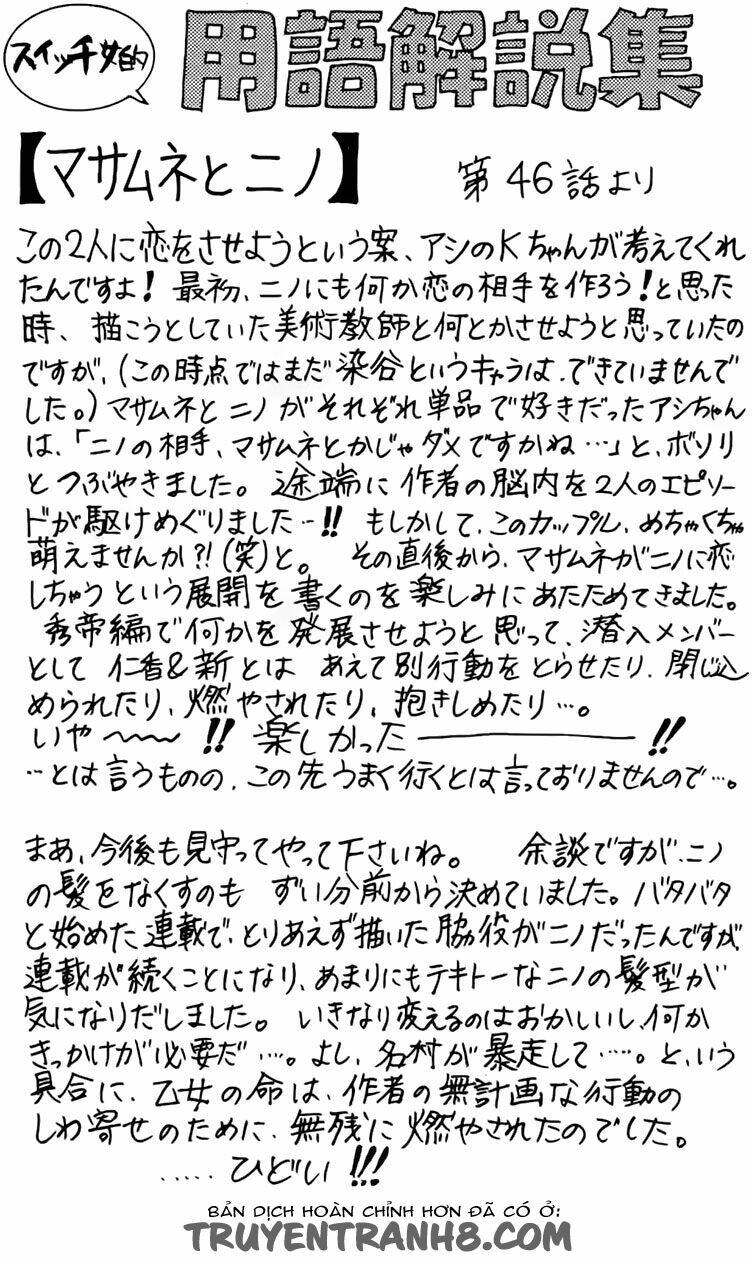 スイッチ女的
用語解説集
【マサムネとニノ】 第46話より
この2人に恋をさせようという案、アシのKちゃんが考えてくれ
たんですよ！ 最初、ニノにも何か恋の相手を作ろう！と思った
時、描こうとしていた美術教師と何とかさせようと思っていたの
ですが、(この時点ではまだ染谷というキャラは、できていませんで
した。)マサムネとニノがそれぞれ単品で好きだったアシちゃん
は、「ニノの相手、マサムネとかじゃダメですかね…」と、ボソリ
とつぶやきました。途端に作者の脳内を2人のエピソー
ドが駆けめぐりました…!! もしかして、このカップル、めちゃくちゃ
萌えませんか?!(笑)と。 その直後から、マサムネがニノに恋
しちゃうという展開を書くのを楽しみにあたためてきました。
秀帝編で何かを発展させようと思って、潜入メンバー
として 仁香&新とは あえて別行動をとらせたり、閉じ込
められたり、燃やされたり、抱きしめたり…。
いや〜〜〜!! 楽しかった―――――!!
…とは言うものの、この先うまく行くとは言っておりませんので…。
まあ、今後も見守ってやって下さいね。 余談ですが、ニノ
の髪をなくすのも ずい分前から決めていました。バタバタ
と始めた連載で、とりあえず描いた脇役がニノだったんですが、
連載が続くことになり、あまりにもテキトーなニノの髪型が
気になりだしました。 いきなり変えるのはおかしいし、何か
きっかけが必要だ…。よし、名村が暴走して……。と、いう
具合に、乙女の命は、作者の無計画な行動の
しわ寄せのために、無残に燃やされたのでした。
……ひどい!!!
BẢN DỊCH HOÀN CHỈNH HƠN ĐÃ CÓ Ở:
TRUYENTRANH8.COM